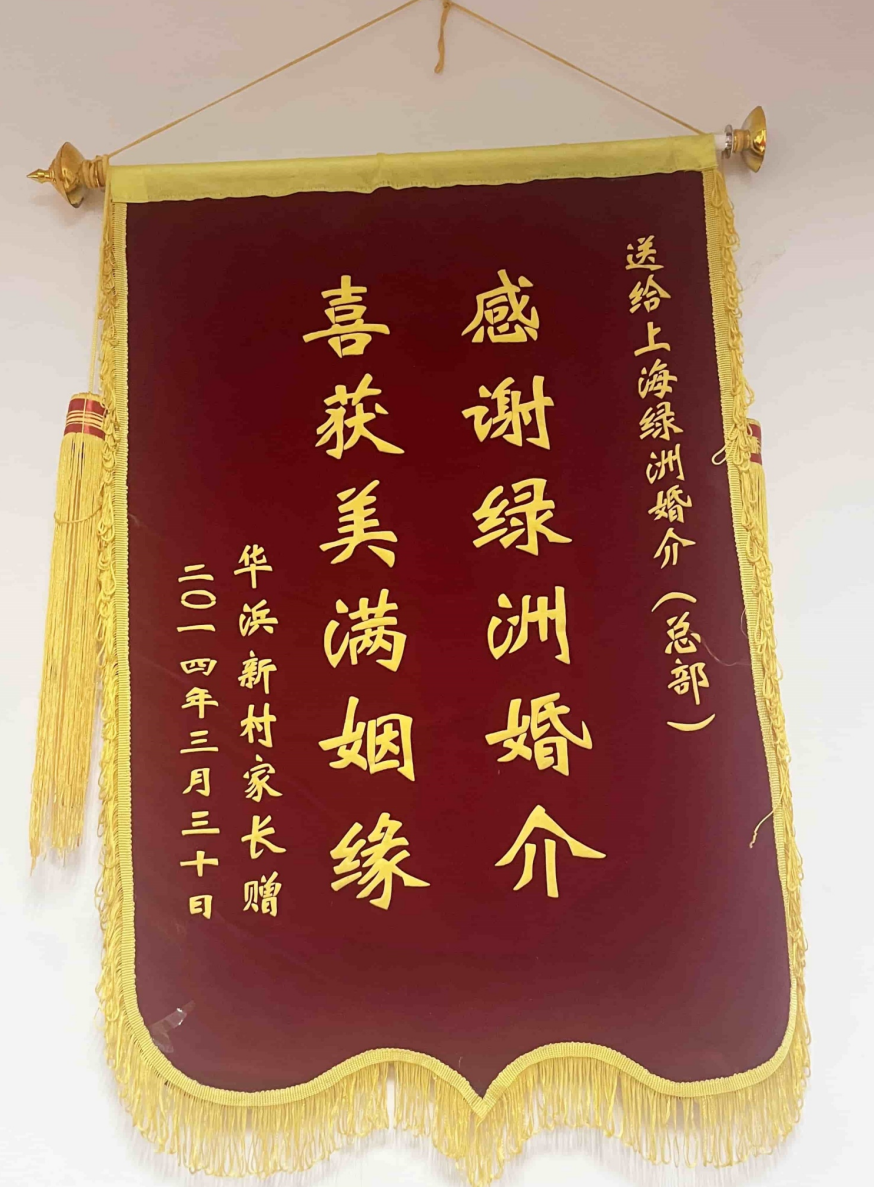 送给上海绿洲婚介（总部）
感谢绿洲婚介
喜获美满姻缘
华浜新村家长赠
二〇一四年三月三十日